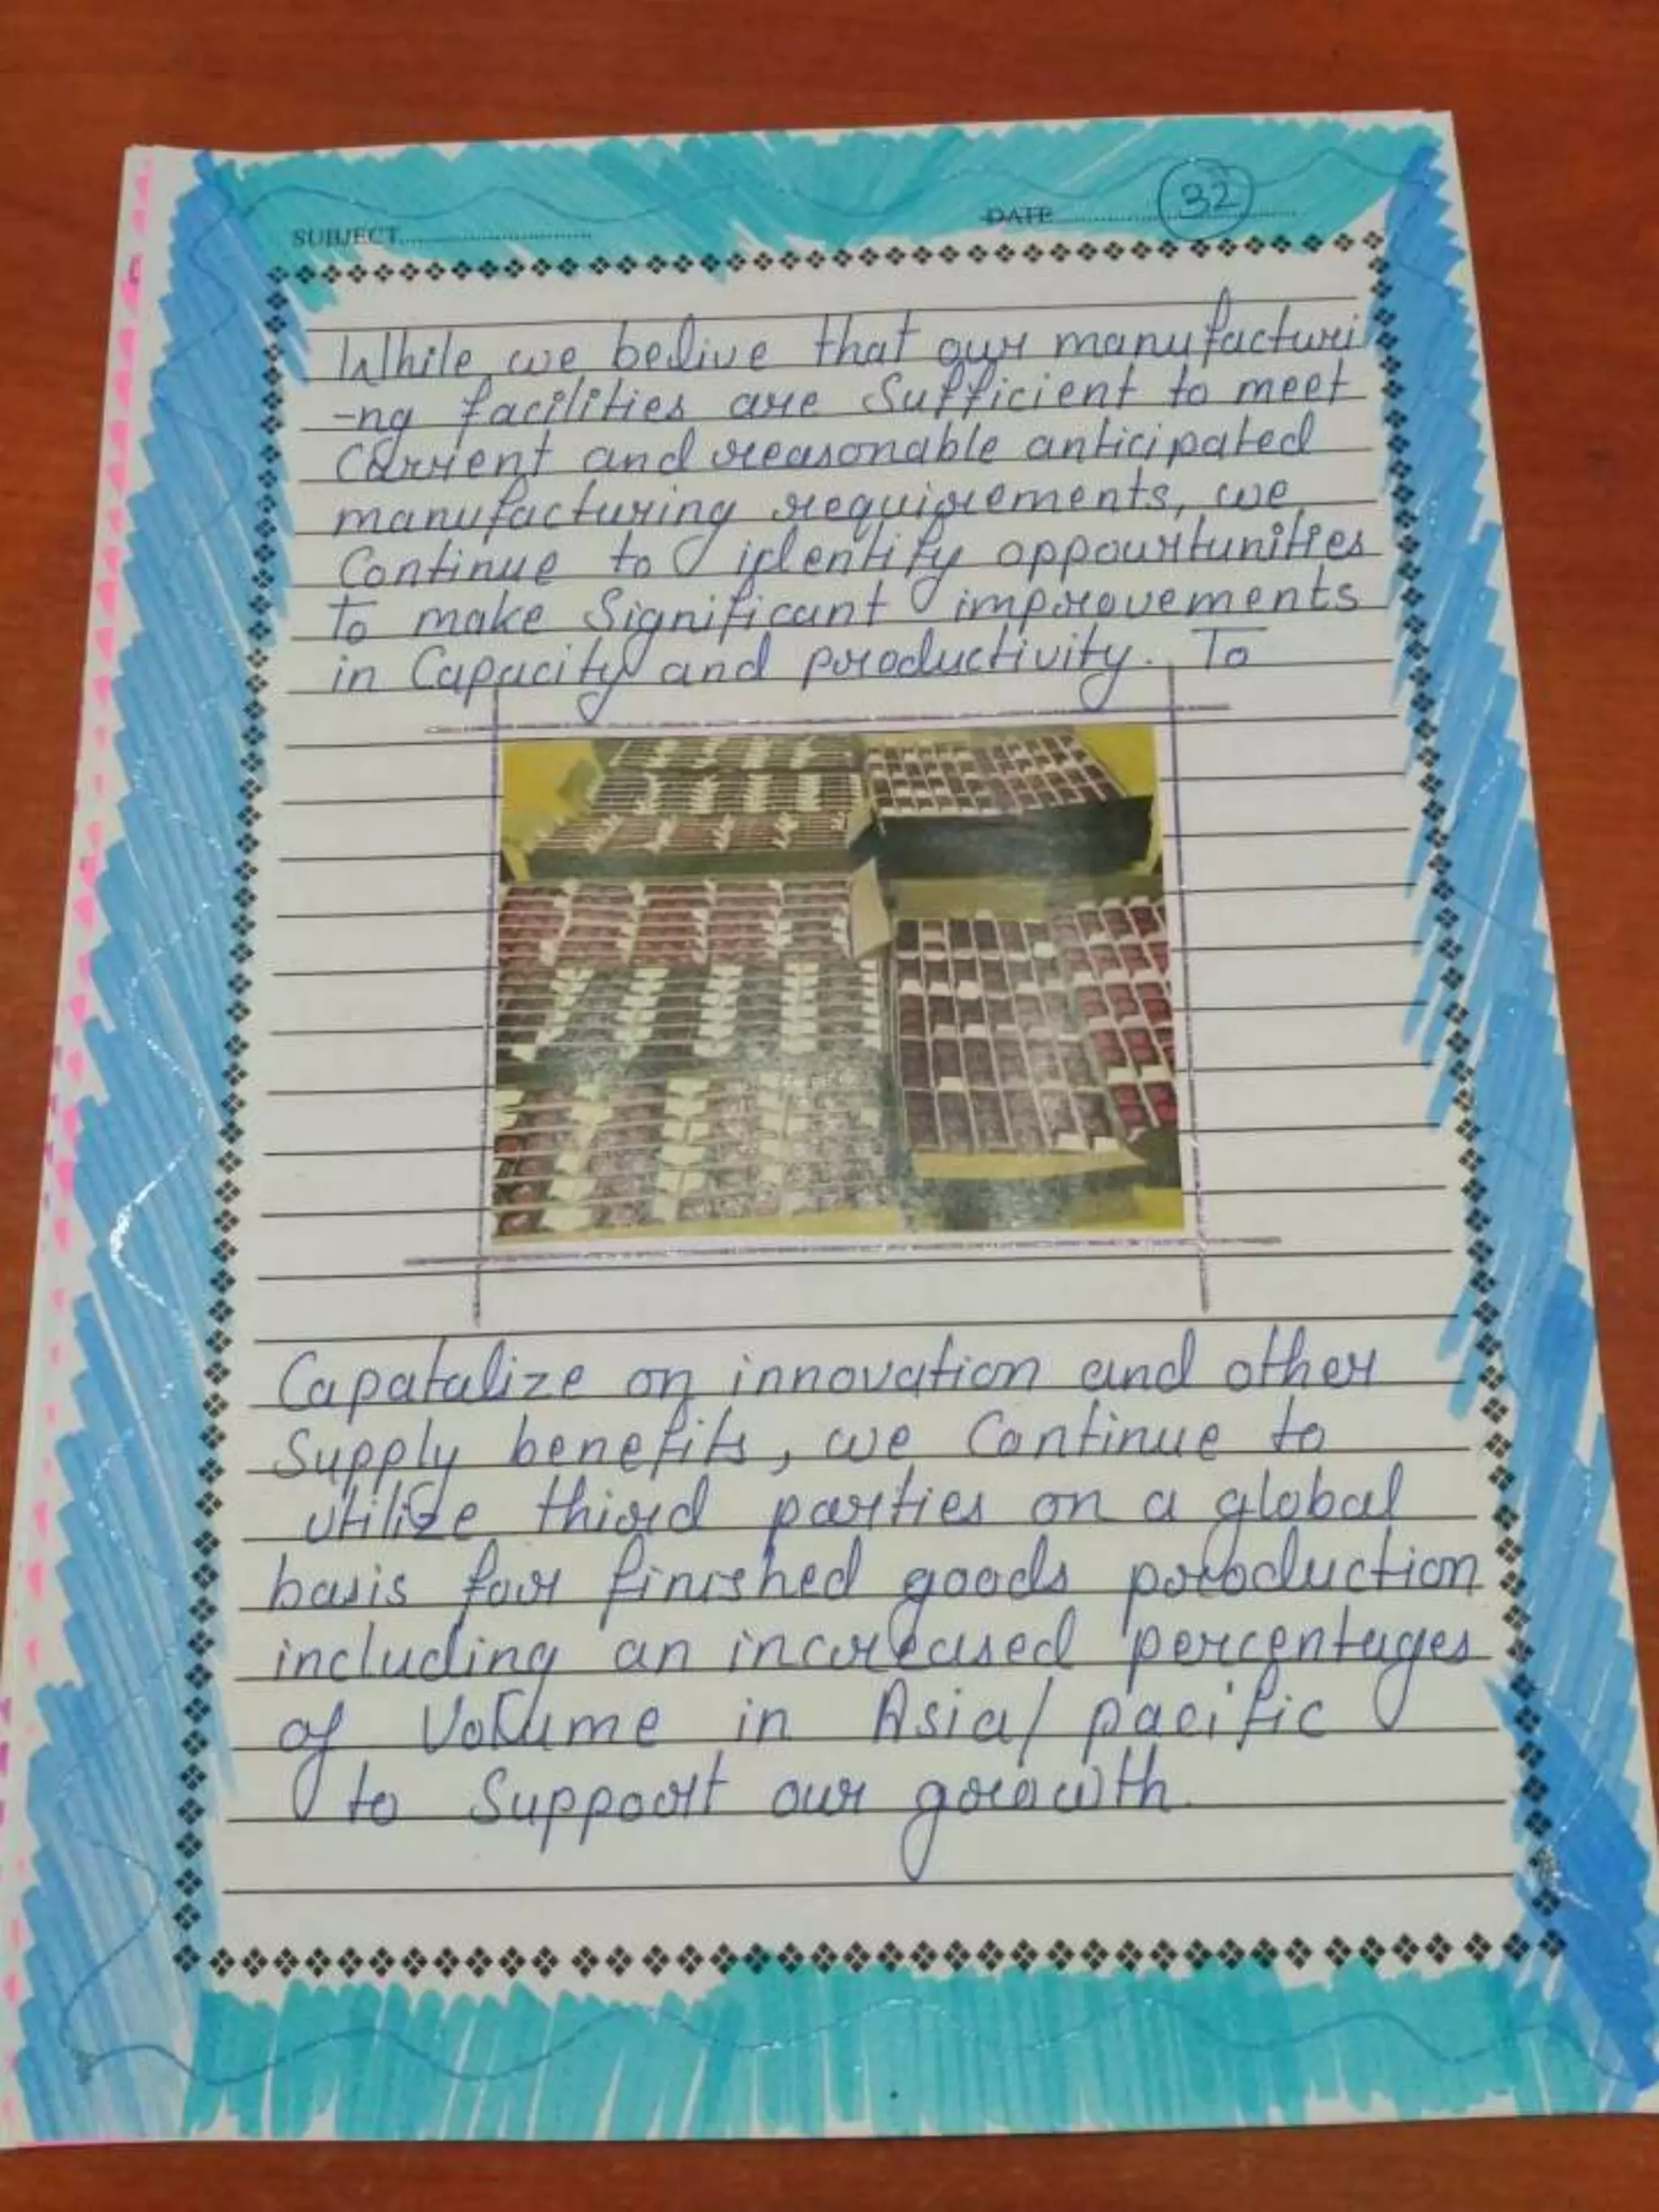 SUBJECT..............................
DATE.............................. 32
While we belive that our manufacturi
-ng facilities are Sufficient to meet
Current and reasonable anticipated
manufacturing requirements, we
Continue to identify oppourtunities
To make Significant improvements
in Capacity and productivity. To
Capatalize on innovation and other
Supply benefits, we Continue to
utilize third parties on a global
basis for finished goods production
including an increased percentages
of Volume in Asia/pacific
to Support our growth.